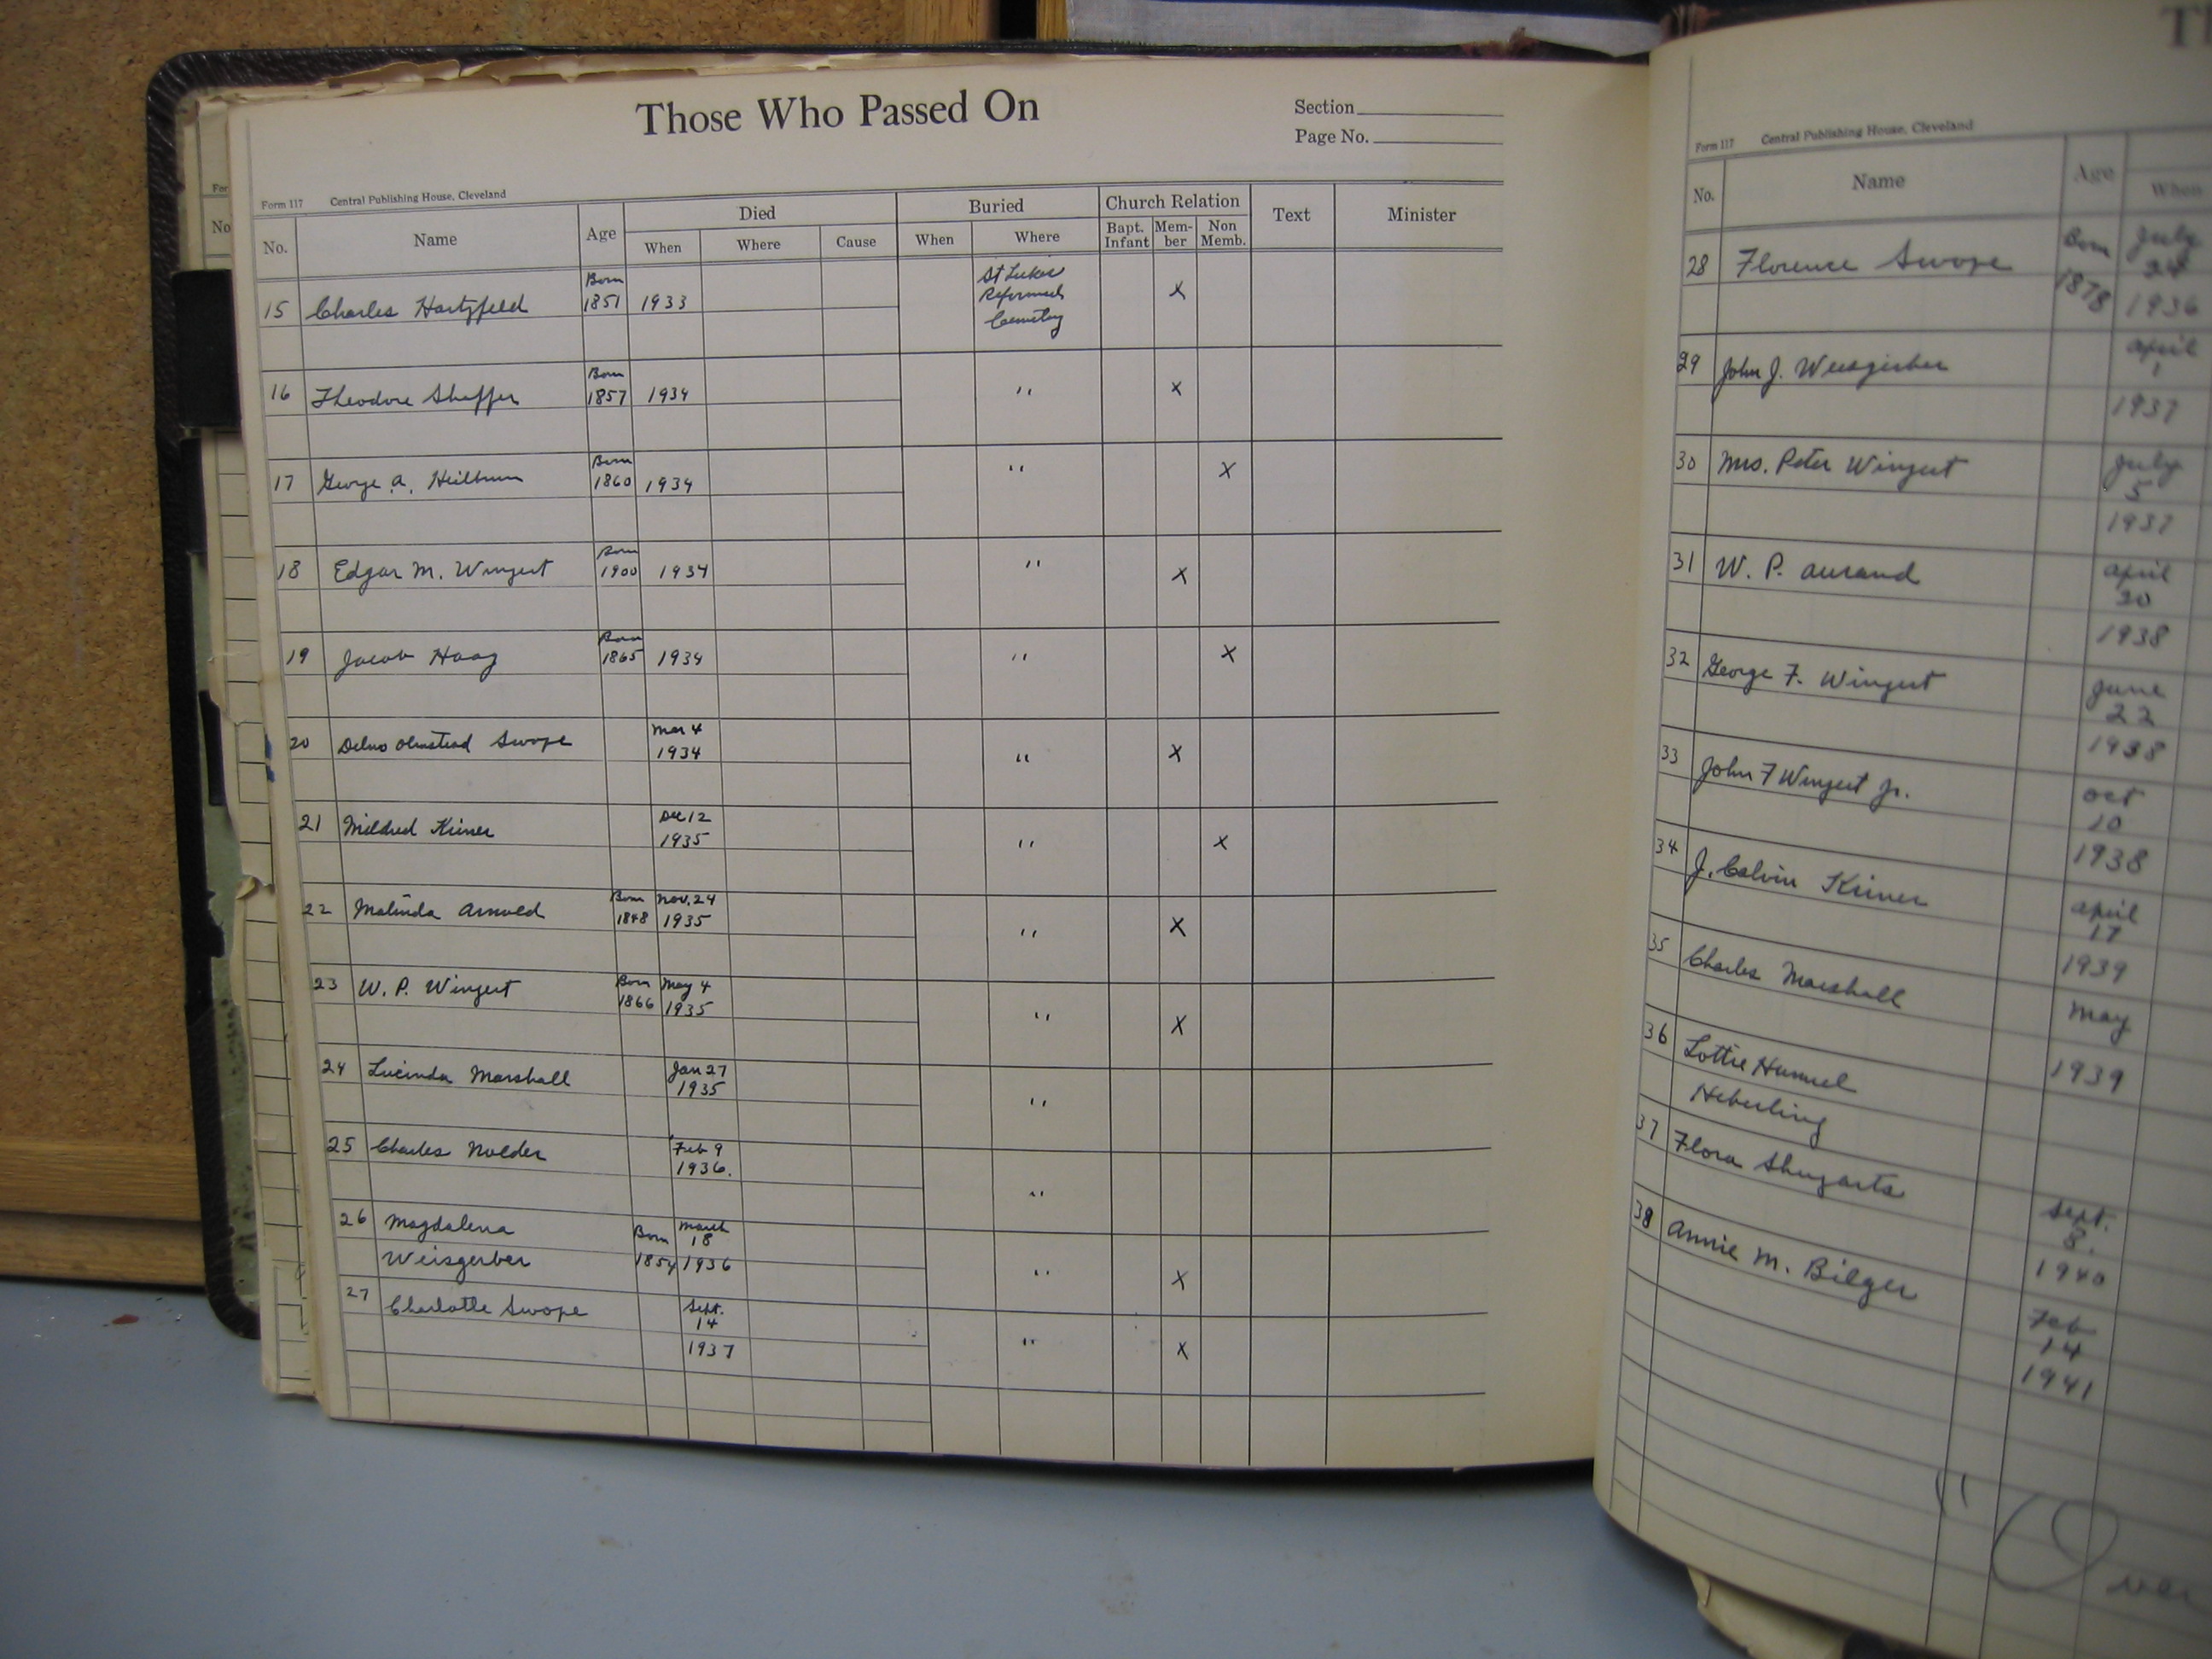 Those Who Passed On
Section
Page No.
Form 117 Central Publishing House, Cleveland
No. Name Age Died Buried Church Relation Text Minister
When Where Cause When Where Bapt. Infant Mem-ber Non Memb.
15 Charles Hartzfeld Born 1851 1933 St Lukes Reformed Cemetery X
16 Theodore Shaffer Born 1857 1934 " X
17 George A. Heilbrun Born 1860 1934 " X
18 Edgar M. Wingert Born 1900 1934 " X
19 Jacob Haag Born 1865 1934 " X
20 Delno Olmstead Swope Mar 4 1934 " X
21 Mildred Kriner Dec 12 1935 " X
22 Malinda Arnold Born 1848 Nov. 24 1935 " X
23 W. P. Wingert Born 1866 May 4 1935 " X
24 Lucinda Marshall Jan 27 1935 "
25 Charles Nolder Feb 9 1936. "
26 Magdalena Weisgerber Born 1854 March 18 1936 " X
27 Charlotte Swope Sept. 14 1937 " X
For
No
Form 117 Central Publishing House, Cleveland
No. Name Age When
28 Florence Swope Born 1878 July 24 1936
29 John J. Weisgerber April 1 1937
30 Mrs. Peter Wingert July 5 1937
31 W. P. Aurand April 20 1938
32 George F. Wingert June 22 1938
33 John F Wingert Jr. Oct 10 1938
34 J. Calvin Kriner April 17 1939
35 Charles Marshall May 1939
36 Lottie Hummel Heberling
37 Flora Shugarts Sept. 8. 1940
38 Annie M. Bilger Feb 14 1941
" Over